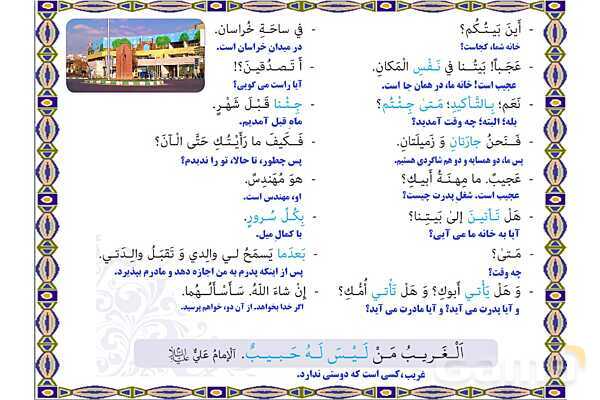 - أَينَ بَيتُكُم؟
خانه شما، کجاست؟
- في ساحَةِ خُراسان.
در میدان خراسان است.
- عَجَباً! بَيتُنا في نَفْسِ الْمَكانِ.
عجیب است! خانه ما، در همان جا است.
- أَ تَصدُقينَ؟!
آیا راست می گویی؟
- نَعَم؛ بِالتَّأكيدِ؛ مَتیٰ جِئْتُم؟
بله؛ البته؛ چه وقت آمدید؟
- جِئْنا قَبْلَ شَهْرٍ.
ماه قبل آمدیم.
- فَنَحنُ جارَتانِ وَ زَميلَتانِ.
پس ما، دو همسایه و دو هم شاگردی هستیم.
- فَكَيفَ ما رَأَيْتُكِ حَتَّی الْآنَ؟
پس چطور، تا حالا، تو را ندیدم؟
- عَجيبٌ. ما مِهنَةُ أَبيكِ؟
عجیب است. شغل پدرت چیست؟
- هوَ مُهَندِسٌ.
او، مهندس است.
- هَلْ تَأتينَ إلیٰ بَيتِنا؟
آیا به خانه ما می آیی؟
- بِكُلِّ سُرورٍ.
با کمال میل.
- مَتیٰ؟
چه وقت؟
- بَعدَما يَسمَحُ لي والِدي وَ تَقبَلُ والِدَتي.
پس از اینکه پدرم به من اجازه دهد و مادرم بپذیرد.
- وَ هَلْ يَأتي أَبوكِ؟ وَ هَلْ تَأتي أُمُّكِ؟
و آیا پدرت می آید؟ و آیا مادرت می آید؟
- إنْ شاءَ اللّٰهُ. سَأَسْأَلُهُما.
اگر خدا بخواهد. از آن دو، خواهم پرسید.
اَلْغَريبُ مَنْ لَيْسَ لَهُ حَبيبٌ. اَلإمامُ عَليٌّ
غریب، کسی است که دوستی ندارد.
Gama